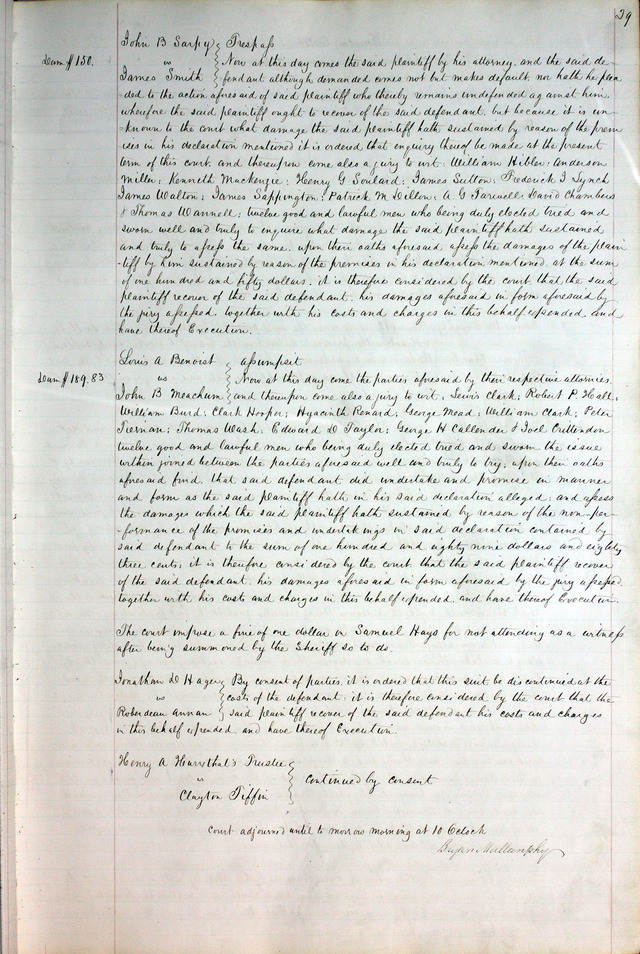 29
John B Sarpy } Trespass
Dam $150. vs } Now at this day comes the said plaintiff by his attorney, and the said de-
James Smith } fendant although demanded comes not but makes default, nor hath he plea
ded to the action aforesaid of said plaintiff who thereby remains undefended against him.
wherefore the said plaintiff ought to recover of the said defendant. but because it is un
-known to the court what damage the said plaintiff hath sustained by reason of the prem
ises in his declaration mentioned it is ordered that enquiry thereof be made at the present
term of this court, and thereupon come also a jury to wit: William Hibler: Anderson
Miller: Kenneth Mackenzie: Henry G Soulard: James Sutton: Frederick J Lynch
James Walton: James Sappington: Patrick M Dillon: A G Farwell David Chambers
& Thomas Wannell: twelve good and lawful men who being duly elected tried and
sworn well and truly to enquire what damage the said plaintiff hath sustained
and truly to assess the same. upon their oaths aforesaid assess the damages of the plain
-tiff by him sustained by reason of the premises in his declaration mentioned at the sum
of one hundred and fifty dollars: it is therefore considered by the court that the said
plaintiff recover of the said defendant, his damages aforesaid in form aforesaid by
the jury assessed, together with his costs and charges in this behalf expended and
have thereof Execution.
Louis A Benoist } assumpsit
Dam $189.83 vs } Now at this day come the parties aforesaid by their respective attornies.
John B Meachum } and thereupon come also a jury to wit: Lewis Clark: Robert P Hall:
William Burd: Clark Hooper: Hyacinth Renard: George Mead: William Clark: Peter
Tiernan: Thomas Wash: Edward D Taylor: George H Callender & Joel Crittendon
twelve good and lawful men who being duly elected tried and sworn the issue
within joined between the parties aforesaid well and truly to try, upon their oaths
aforesaid find, that said defendant did undertake and promise in manner
and form as the said plaintiff hath in his said declaration alleged: and assess
the damages which the said plaintiff hath sustained by reason of the non-per-
-formance of the promises and undertakings in said declaration contained by
said defendant to the sum of one hundred and eighty nine dollars and eighty
three cents: it is therefore considered by the court that the said plaintiff recover
of the said defendant, his damages aforesaid in form aforesaid by the jury assessed
together with his costs and charges in this behalf expended, and have thereof Execution.
The court impose a fine of one dollar on Samuel Hays for not attending as a witness
after being summoned by the Sheriff so to do.
Jonathan D Hager } By consent of parties. it is ordered that this suit be discontinued at the
vs } costs of the defendant: it is therefore considered by the court that the
Roberdeau Annan } said plaintiff recover of the said defendant his costs and charges
in this behalf expended and have thereof Execution.
Henry A Harrothal's Trustee
vs } continued by consent
Clayton Tiffin
Court adjourned until to morrow morning at 10 Oclock
Bryan Mullanphy